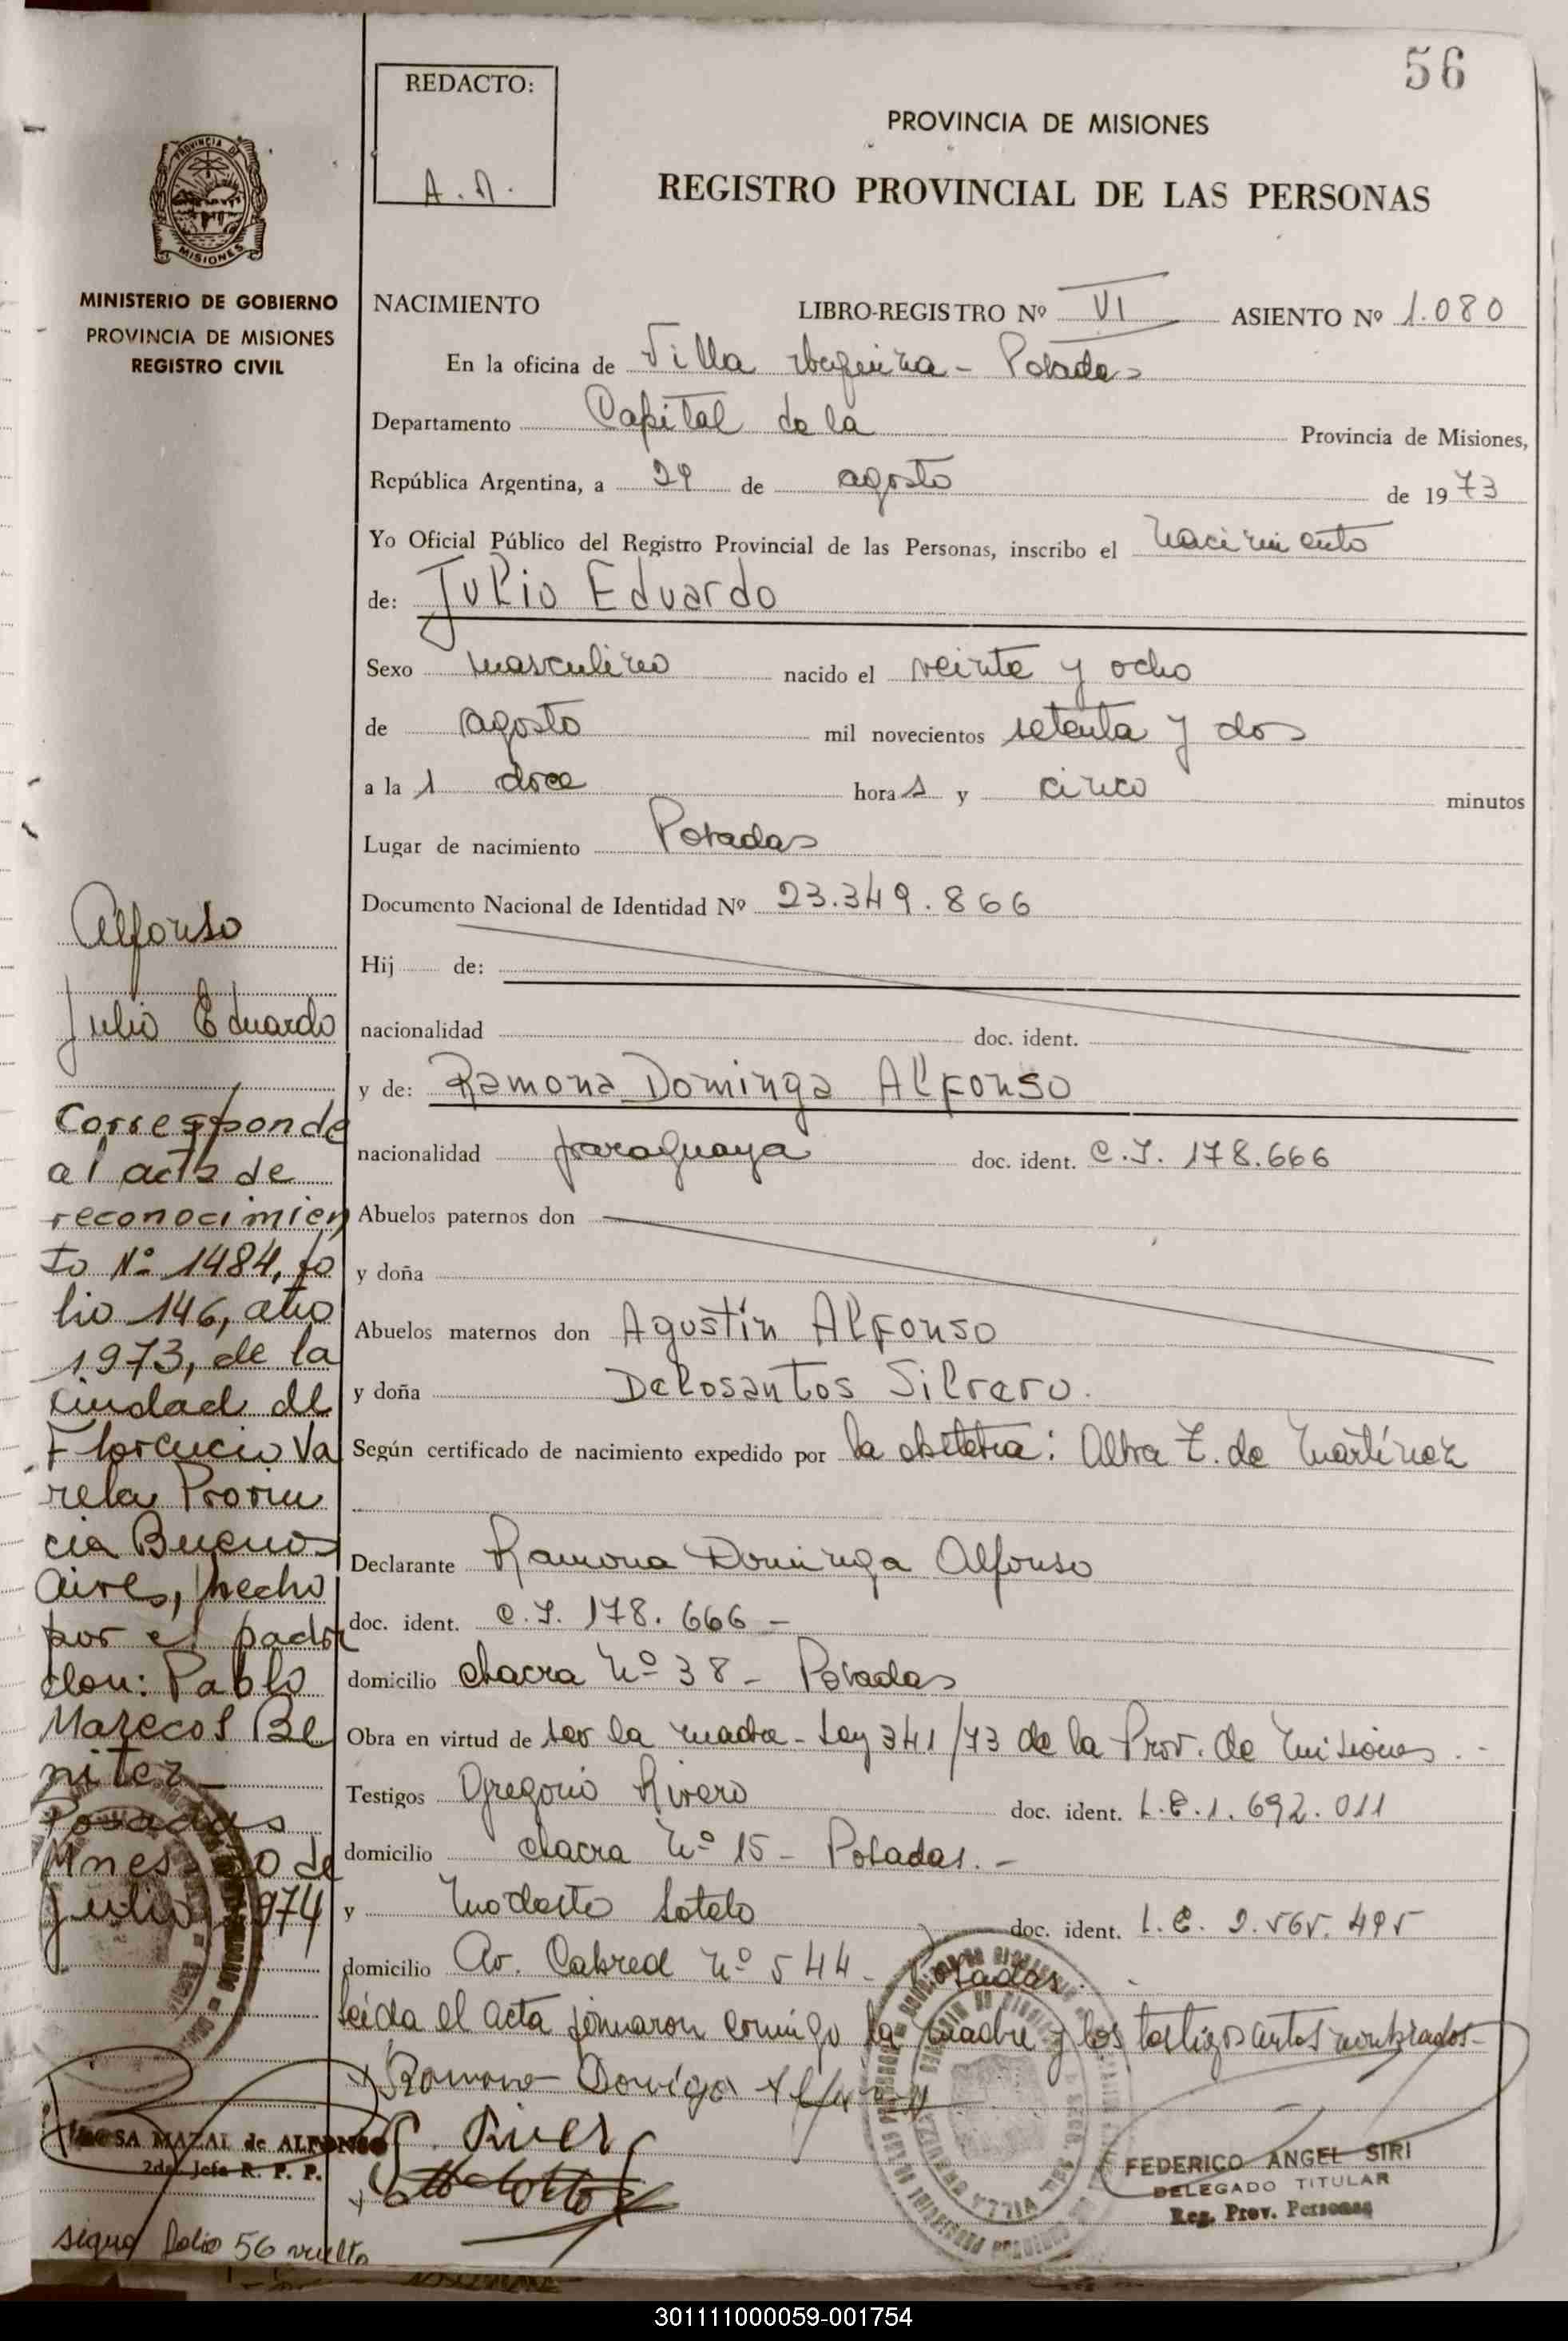 56
REDACTO:
A.A.
PROVINCIA DE MISIONES
REGISTRO PROVINCIAL DE LAS PERSONAS
PROVINCIA DE
MISIONES
MINISTERIO DE GOBIERNO
PROVINCIA DE MISIONES
REGISTRO CIVIL
NACIMIENTO LIBRO-REGISTRO Nº VI ASIENTO Nº 1.080
En la oficina de Villa Urquiza - Posadas
Departamento Capital de la Provincia de Misiones,
República Argentina, a 29 de agosto de 1973
Yo Oficial Público del Registro Provincial de las Personas, inscribo el nacimiento
de: Julio Eduardo
Sexo masculino nacido el veinte y ocho
de agosto mil novecientos setenta y dos
a la s doce hora s y cinco minutos
Lugar de nacimiento Posadas
Documento Nacional de Identidad Nº 23.349.866
Hij de:
nacionalidad doc. ident.
y de: Ramona Dominga Alfonso
nacionalidad paraguaya doc. ident. C.I. 178.666
Abuelos paternos don
y doña
Abuelos maternos don Agustín Alfonso
y doña Delosantos Silvero.
Según certificado de nacimiento expedido por la obstetra: Alba Z. de Martínez
Declarante Ramona Dominga Alfonso
doc. ident. C.I. 178.666 -
domicilio chacra Nº 38 - Posadas
Obra en virtud de ser la madre - Ley 341/73 de la Prov. de Misiones. -
Testigos Gregorio Rivero doc. ident. L.E. 1.692.011
domicilio chacra Nº 15 - Posadas. -
y Modesto Sotelo doc. ident. L.E. 2.565.495
domicilio Av. Cabred Nº 544 - Posadas.
Leída el acta firmaron conmigo la madre y los testigos antes nombrados -
Ramona Dominga Alfonso
G. River
FEDERICO ANGEL SIRI
DELEGADO TITULAR
Reg. Prov. Personas
Alfonso
Julio Eduardo
Corresponde
al acta de
reconocimien
to Nº 1484, fo
lio 146, año
1973, de la
ciudad de
Florencio Va
rela Provin
cia Buenos
Aires, hecho
por el padre
don: Pablo
Marecos Be
nitez
Posadas
Mnes. 30 de
julio 1974
ROSA MAZAL de ALFONSO
2da. Jefa R. P. P.
sigue folio 56 vuelto
301111000059-001754